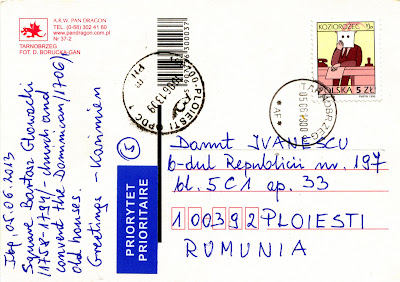 A.R.W. PAN DRAGON
TEL. 0-(58) 302 41 60
www.pandragon.com.pl
Nr 37-2
TARNOBRZEG
FOT. D. BORUCKA-GAN
Isp, 05.06.2013
Square Bartosz Głowacki
(1758-1794) - church and
convent the Dominican (1706),
old houses.
Greetings - Kazimierz
PRIORYTET
PRIORITAIRE
5
PLOIESTI
TARNOBRZEG
KOZIOROŻEC
POLSKA 5 ZŁ
Danut IVANESCU
b-dul Republicii nr. 197
bl. 5C1 ap. 33
100392 PLOIESTI
RUMUNIA